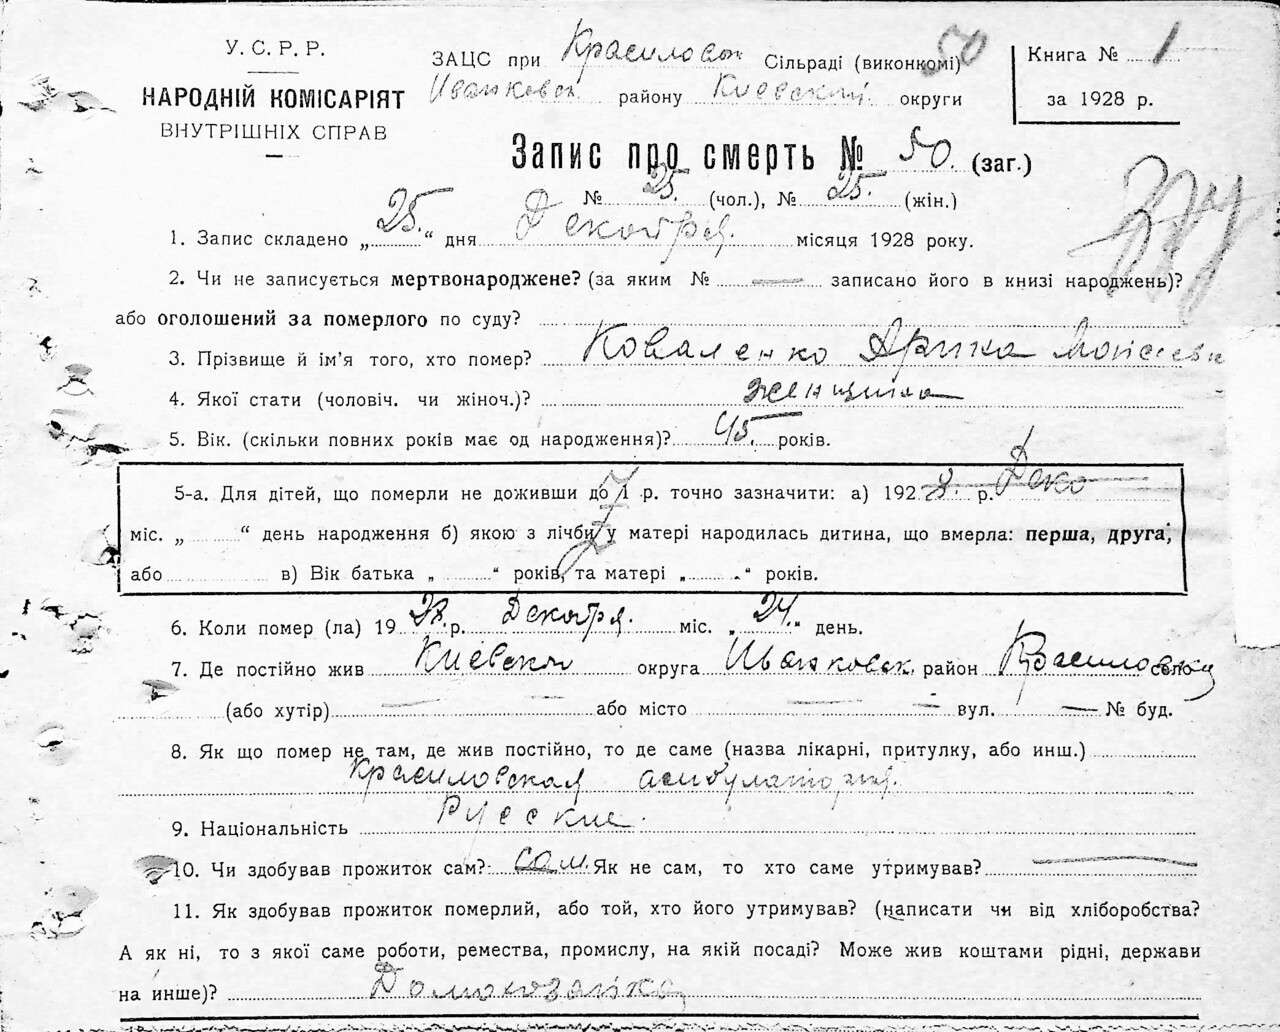 У. С. Р. Р.
НАРОДНІЙ КОМІСАРІЯТ
ВНУТРІШНІХ СПРАВ
ЗАЦС при Красиловск Сільраді (виконкомі) 50
Иванковск району Киевской округи
Книга № 1
за 1928 р.
Запис про смерть № 50. (заг.)
№ 25. (чол.), № 25. (жін.)
1. Запис складено „25.“ дня Декабря. місяця 1928 року.
2. Чи не записується мертвонароджене? (за яким № — записано його в книзі народжень)?
або оголошений за померлого по суду?
3. Прізвище й ім'я того, хто помер? Коваленко
4. Якої стати (чоловіч. чи жіноч.)? женщина
5. Вік. (скільки повних років має од народження)? 45. років.
5-а. Для дітей, що померли не доживши до 1 р. точно зазначити: а) 1928. р. Дека
міс. „ “ день народження б) якою з лічби у матері народилась дитина, що вмерла: перша, друга,
або в) Вік батька „ “ років, та матері „ “ років.
6. Коли помер (ла) 1928. р. Декабря. міс. „24.“ день.
7. Де постійно жив Киевской округа Иванковск. район село
(або хутір) — або місто — — вул. — № буд.
8. Як що помер не там, де жив постійно, то де саме (назва лікарні, притулку, або инш.)
Красиловская амбулатория.
9. Національність Русские.
10. Чи здобував прожиток сам? сам. Як не сам, то хто саме утримував? —
11. Як здобував прожиток померлий, або той, хто його утримував? (написати чи від хліборобства?
А як ні, то з якої саме роботи, ремества, промислу, на якій посаді? Може жив коштами рідні, держави
на инше)? Домохозайка